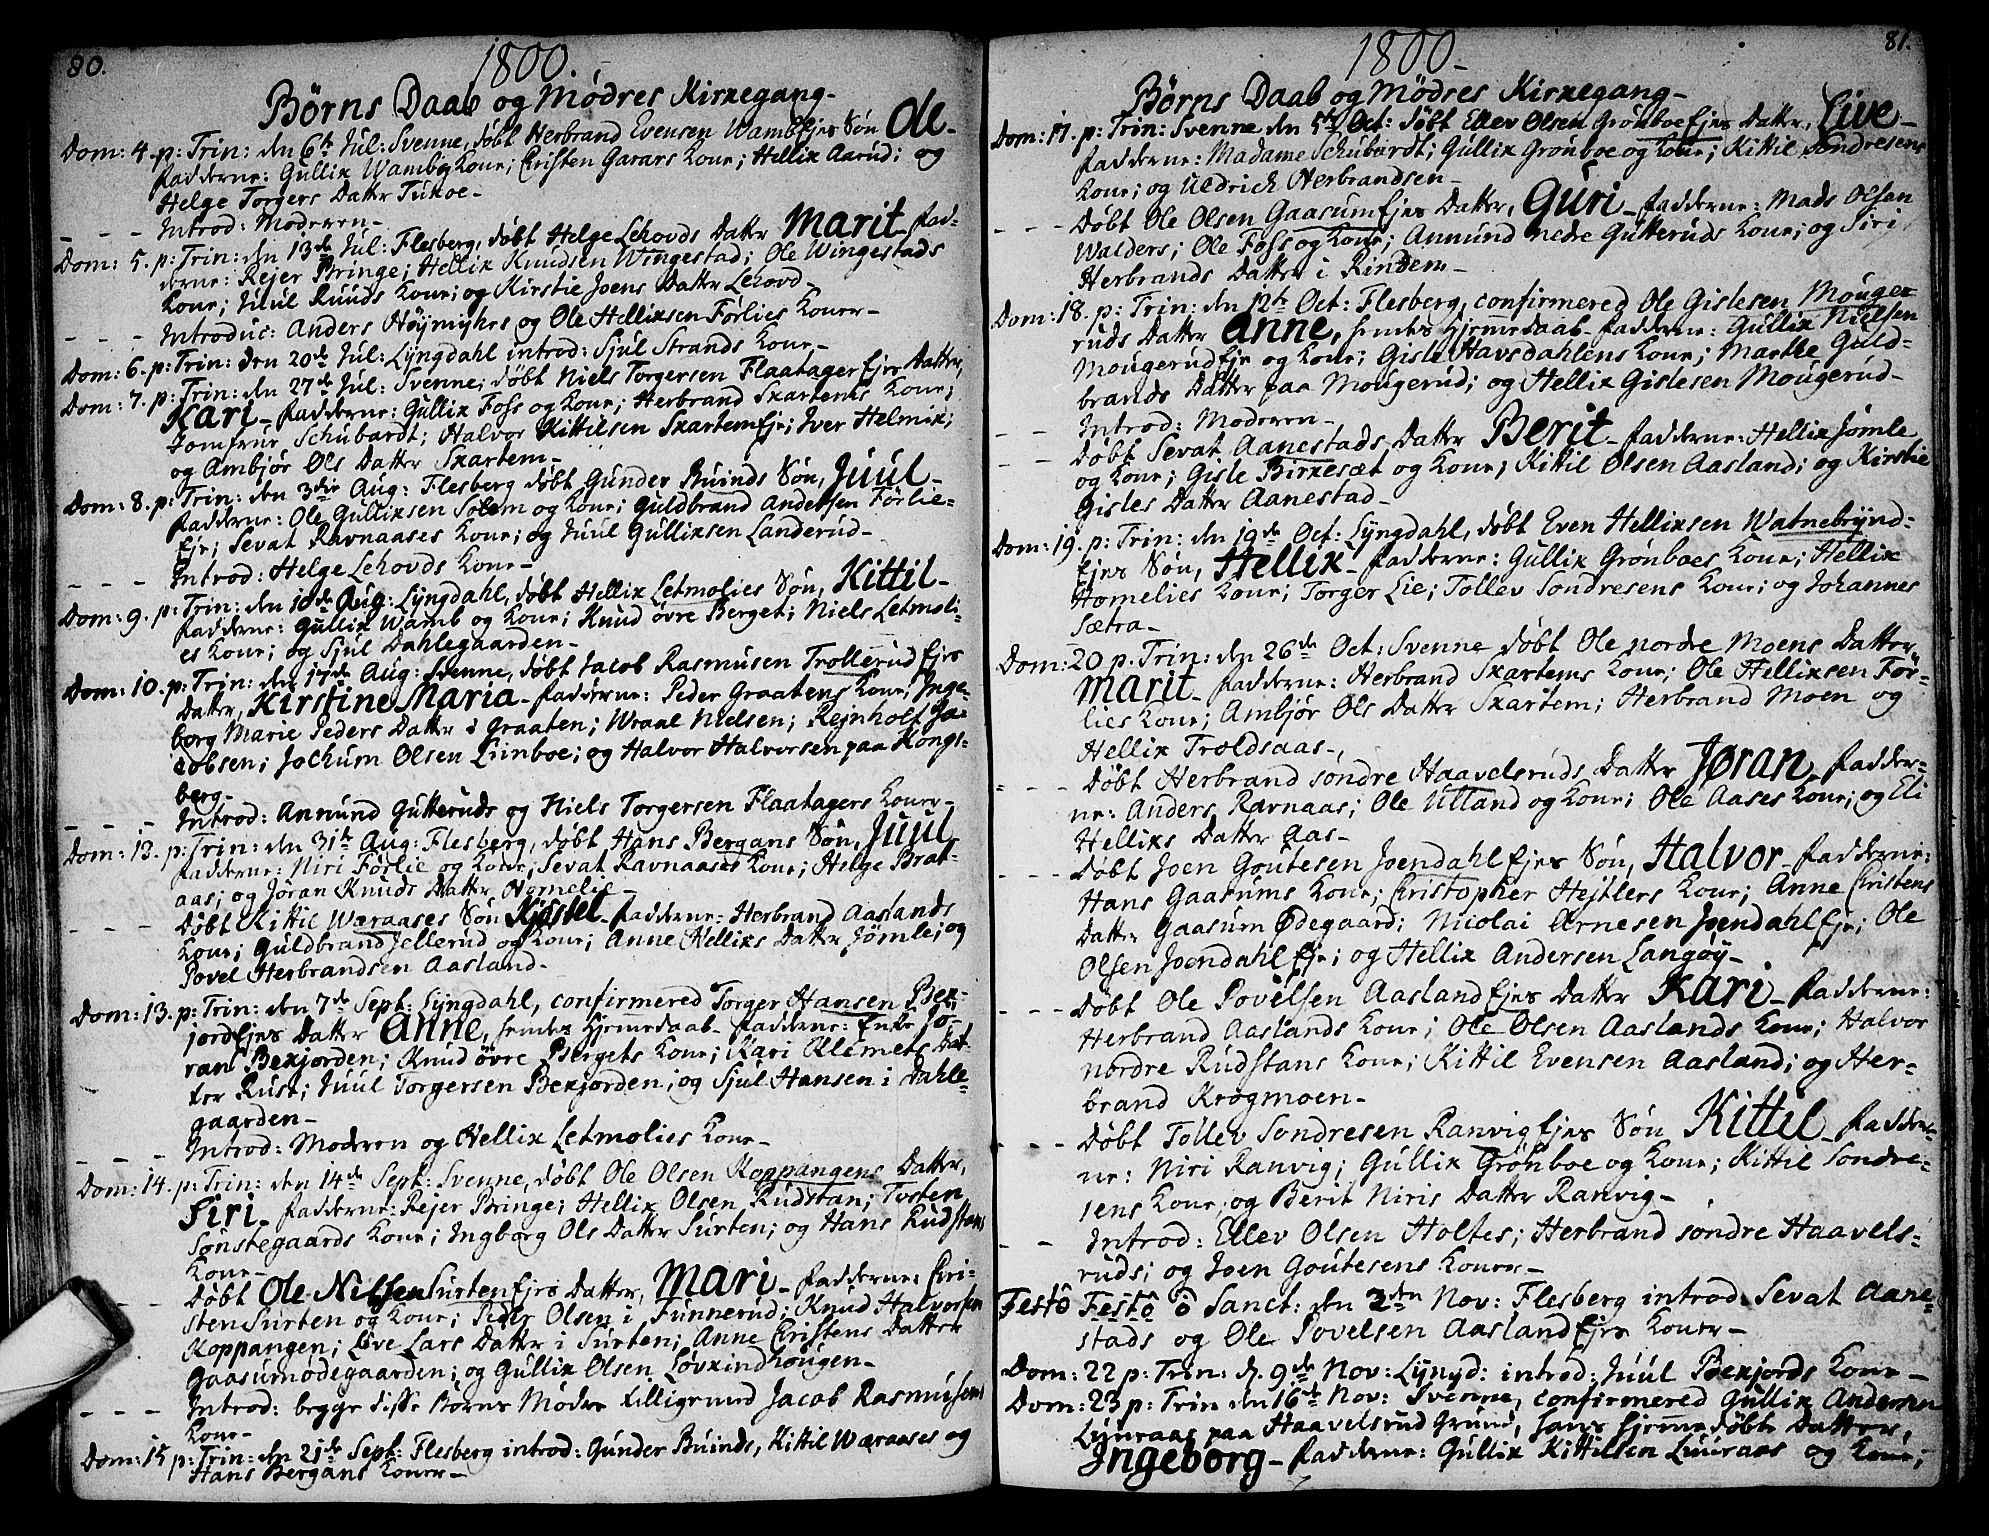 80.
1800.
Børns Daab og Mødres Kirkegang-
Dom: 4. p: Trin: den 6te Jul: Svenne, døbt Herbrand Evensen Wamb Ejes Søn Ole-
Fadderne: Gullik Wambs Kone; Christen Garaas Kone; Hellik Aarud; og
Helge Torgers Datter Tukoe-
- - - Introd: Moderen-
Dom: 5. p: Trin: den 13de Jul: Flesberg, døbt Helge Lehovds Datter Marit- Fad-
derne: Rejer Bringe; Hellik Knudsen Wingestad; Ole Wingestads
Kone; Juul Ruuds Kone; og Kirstie Joens Datter Lehovd-
- - - Introduc: Anders Høymyhrs og Ole Helliksen Førlies Koner-
Dom: 6. p: Trin: den 20de Jul: Lyngdahl introd: Sjul Strands Kone-
Dom: 7. p: Trin: den 27de Jul: Svenne; døbt Niels Torgersen Flaatager Ejes Datter,
Kari- Fadderne: Gullik Foss og Kone; Herbrand Skartems Kone;
Jomfrue Schubardt; Halvor Kittilsen Skartem Eje; Iver Helmik;
og Ambjør Ols Datter Skartem-
Dom: 8. p: Trin: den 3die Aug: Flesberg døbt Gunder Buinds Søn, Juul-
Fadderne: Ole Gulliksen Solem og Kone; Guldbrand Andersen Førlie-
Eje; Sevat Ravnaases Kone; og Juul Gulliksen Landerud-
- - - Introd: Helge Lehovds Kone-
Dom: 9. p: Trin: den 10de Aug: Lyngdahl, døbt Hellik Letmolies Søn, Kittil-
Fadderne: Gullik Wamb og Kone; Knud øvre Berget; Niels Letmoli-
es Kone; og Sjul Dahlegaarden-
Dom: 10. p: Trin: den 17de Aug: Svenne, døbt Jacob Rasmusen Trollerud Ejes
Datter, Kirstine Maria- Fadderne: Peder Graatens Kone; Inge-
borg Marie Peders Datter i Graaten; Wraal Nielsen; Rejnholt Ja-
cobsen; Jochum Olsen Liinboe; og Halvor Halvorsen paa Kongs-
berg-
- - - Introd: Anmund Gutteruds og Niels Torgersen Flaatagers Koner-
Dom: 13. p: Trin: den 31te Aug: Flesberg, døbt Hans Bergans Søn, Juul
Fadderne: Niri Førlie og Kone; Sevat Ravnaases Kone; Helge Brat-
aas; og Jøran Knuds Datter Homelie-
- - - Døbt Kittil Wæraases Søn Kjøstel- Fadderne: Herbrand Aaslands
Kone; Guldbrand Jellerud og Kone; Anne Helliks Datter Jømle; og
Povel Herbrandsen Aasland-
Dom: 13. p: Trin: den 7de Sept: Lyngdahl, confirmered Torger Hansen Bek-
jord Ejes Datter Anne, hendes Hjemedaab- Fadderne: Enke Jø-
ran Bekjorden; Knud øvre Bergets Kone; Kari Klemets Dat-
ter Rust; Juul Torgersen Bekjorden; og Sjul Hansen i Dahle-
gaarden-
- - - Introd: Moderen og Hellik Letmolies Kone-
Dom: 14. p: Trin: den 14de Sept: Svenne, døbt Ole Olsen Koppangens Datter,
Siri- Fadderne: Rejer Bringe; Hellik Olsen Rudstan; Tosten
Sønstegaards Kone; Ingborg Ols Datter Surten; og Hans Rudstans
Kone-
- - Døbt Ole Nilsen Surten Ejes Datter, Mari- Fadderne: Chri-
sten Surten og Kone; Peder Olsen i Funnerud; Knud Halvorsen
Koppangen; Live Lars Datter i Surten; Anne Christens Datter
Gaasumødegaarden; og Gullik Olsen Løvkindhougen-
- - - Introd: begge disse Børns Mødre tilligemed Jacob Rasmusens
Kone-
Dom: 15 p: Trin: den 21de Sept: Flesberg introd: Gunder Buinds, Kittil Wæraases og
Hans Bergans Koner-
81.
1800-
Børns Daab og Mødres Kirkegang-
Dom: 17. p: Trin: Svenne den 5te Oct: døbt Ellev Olsen Grønboe Ejes Datter, Live-
Fadderne: Madame Schubardt; Gullik Grønboe og Kone; Kittil Sondresens
Kone; og Uldrich Herbrandsen-
- - - Døbt Ole Olsen Gaasum Ejes Datter, Guri- Fadderne: Mads Olsen
Walders; Ole Foss og Kone; Anmund nedre Gutteruds Kone; og Siri
Herbrands Datter i Rindem-
Dom: 18. p: Trin: den 12te Oct: Flesberg, confirmered Ole Gislesen Mouge-
ruds Datter Anne, hendes Hjemmedaab- Fadderne: Gullik Nielsen
Mougerud Eje og Kone; Gisle Havsdahlens Kone; Marthe Guld-
brands Datter paa Mougerud; og Hellik Gislesen Mougerud-
- - Introd: Moderen-
- - Døbt Sevat Aanestads Datter Berit- Fadderne: Hellik Jømle
og Kone; Gisle Birkesæt og Kone; Kittil Olsen Aasland; og Kirstie
Gisles Datter Aanestad-
Dom: 19. p: Trin: den 19de Oct: Lyngdahl, døbt Even Helliksen Watnebrynd-
Ejes Søn, Hellik- Fadderne: Gullik Grønboes Kone; Hellik
Homelies Kone; Torger Lie; Tollev Sondresens Kone; og Johannes
Sætra-
Dom: 20 p. Trin: den 26de Oct: Svenne døbt Ole nordre Moens Datter
Marit- Fadderne: Herbrand Skartems Kone; Ole Helliksen Før-
lies Kone; Ambjør Ols Datter Skartem; Herbrand Moen og
Hellik Troldsaas-
- - - Døbt Herbrand søndre Haavelsruds Datter Jøran, Fadder-
ne: Anders Ravnaas; Ole Ulland og Kone; Ole Aases Kone; og Eli
Helliks Datter Aas-
- - - Døbt Joen Goutesen Joendahl Ejes Søn, Halvor- Fadderne:
Hans Gaasums Kone; Christopher Hejtlers Kone; Anne Christens
Datter Gaasum Ødegaard; Nicolai Arnesen Joendahl Eje; Ole
Olsen Joendahl Eje; og Hellik Andersen Langøy-
- - - Døbt Ole Povelsen Aasland Ejes Datter Kari- Fadderne:
Herbrand Aaslands Kone; Ole Olsen Aaslands Kone; Halvor
nordre Rudstans Kone; Kittil Evensen Aasland; og Her-
brand Krogmoen-
- - - Døbt Tollev Sondresen Ranvig Ejes Søn Kittil- Fadder-
ne: Niri Ranvig; Gullik Grønboe og Kone; Kittil Sondre-
sens Kone; og Berit Niris Datter Ranvig-
- - Introd: Ellev Olsen Holtes; Herbrand søndre Haavels-
ruds; og Joen Goutesens Koner-
Festo Festo O Sanct: den 2den Nov: Flesberg introd: Sevat Aane-
stads og Ole Povelsen Aasland Ejes Koner-
Dom: 22 p: Trin: d. 9de Nov: Lyngd: introd: Juul Bekjords Kone-
Dom: 23 p: Trin den 16de Nov: Svenne, confirmered Gullik Andersen
Luuraas paa Haavelsrud Grund, hans hjemmedøbte Datter,
Ingeborg- Fadderne: Gullik Kittilsen Luuraas og Kone;